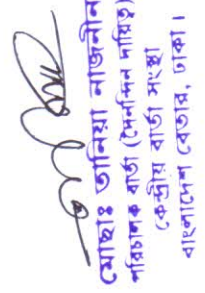 মোছাঃ তানিয়া নাজনীন
পরিচালক বার্তা (দৈনন্দিন দায়িত্ব)
কেন্দ্রীয় বার্তা সংস্থা
বাংলাদেশ বেতার, ঢাকা।